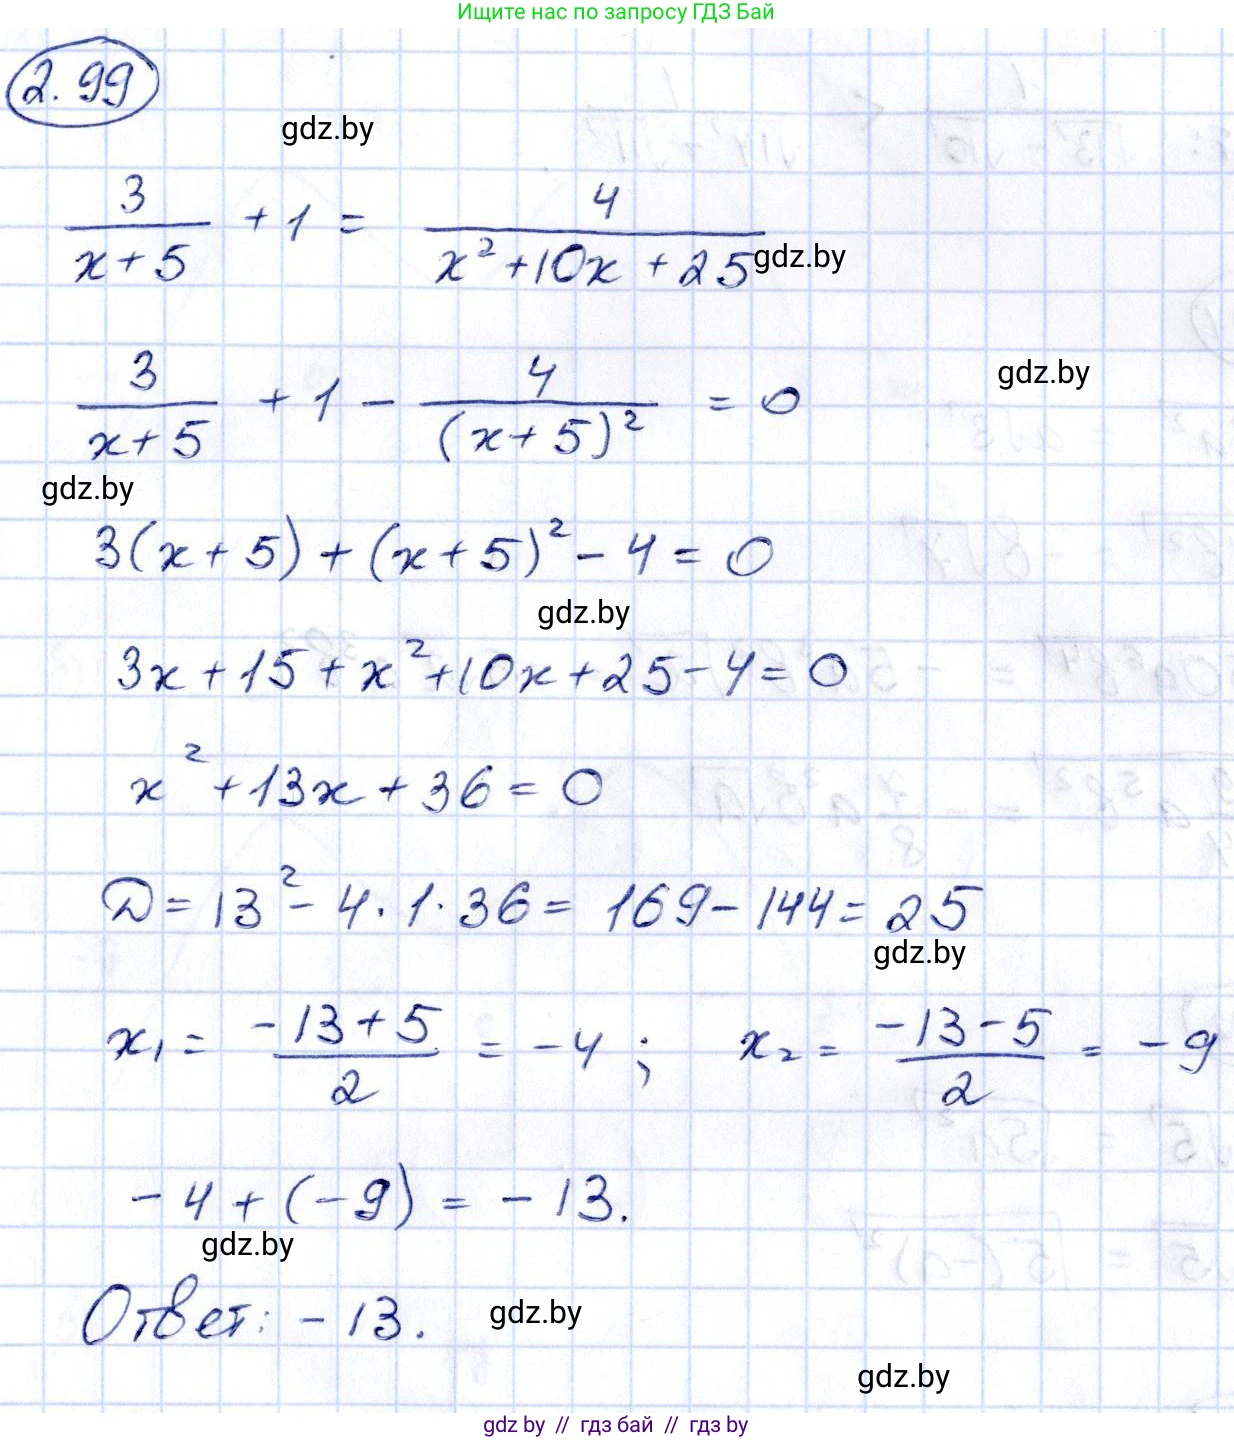 Ищите нас по запросу ГДЗ Бай
2.99
gdz.by
3/(x+5) + 1 = 4/(x²+10x+25)
gdz.by
3/(x+5) + 1 - 4/(x+5)² = 0
gdz.by
gdz.by
3(x+5)+(x+5)²-4=0
gdz.by
3x+15+x²+10x+25-4=0
x²+13x+36=0
D=13²-4·1·36=169-144=25
gdz.by
x₁= (-13+5)/2 = -4; x₂= (-13-5)/2 = -9
-4+(-9)=-13.
gdz.by
Ответ: -13.
gdz.by
gdz.by
gdz by // гдз бай // гдз by